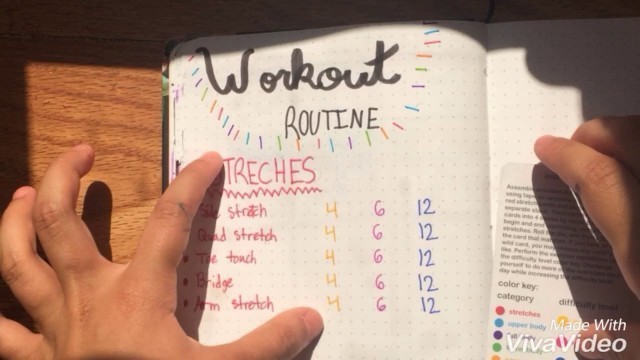 Workout
ROUTINE
TRECHES
Side stretch 4 6 12
Quad stretch 4 6 12
Toe touch 4 6 12
Bridge 4 6 12
Arm stretch 4 6 12
Assembl
using tape
red stretch
separate
cards into 4
begin and end
stretches. Roll
the card that
wild card, you
like. Perform the
the difficulty level
yourself to do more
day while increasing
color key:
category difficulty level
stretches
upper body
Made With
VivaVideo